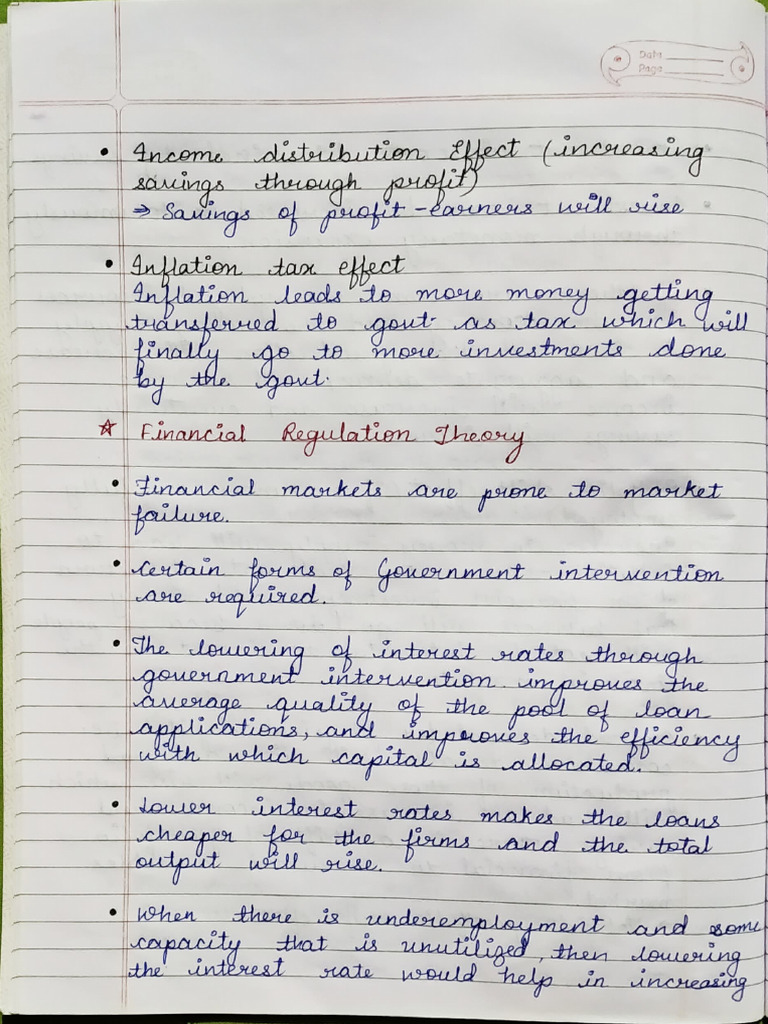 Date
Page
• Income distribution Effect (increasing
savings through profit)
⇒ Savings of profit-earners will rise
• Inflation tax effect
Inflation leads to more money getting
transferred to govt. as tax which will
finally go to more investments done
by the govt.
☆ Financial Regulation Theory
• Financial markets are prone to market
failure.
• Certain forms of Government intervention
are required.
• The lowering of interest rates through
government intervention improves the
average quality of the pool of loan
applications, and improves the efficiency
with which capital is allocated.
• Lower interest rates makes the loans
cheaper for the firms and the total
output will rise.
• When there is underemployment and some
capacity that is unutilized, then lowering
the interest rate would help in increasing